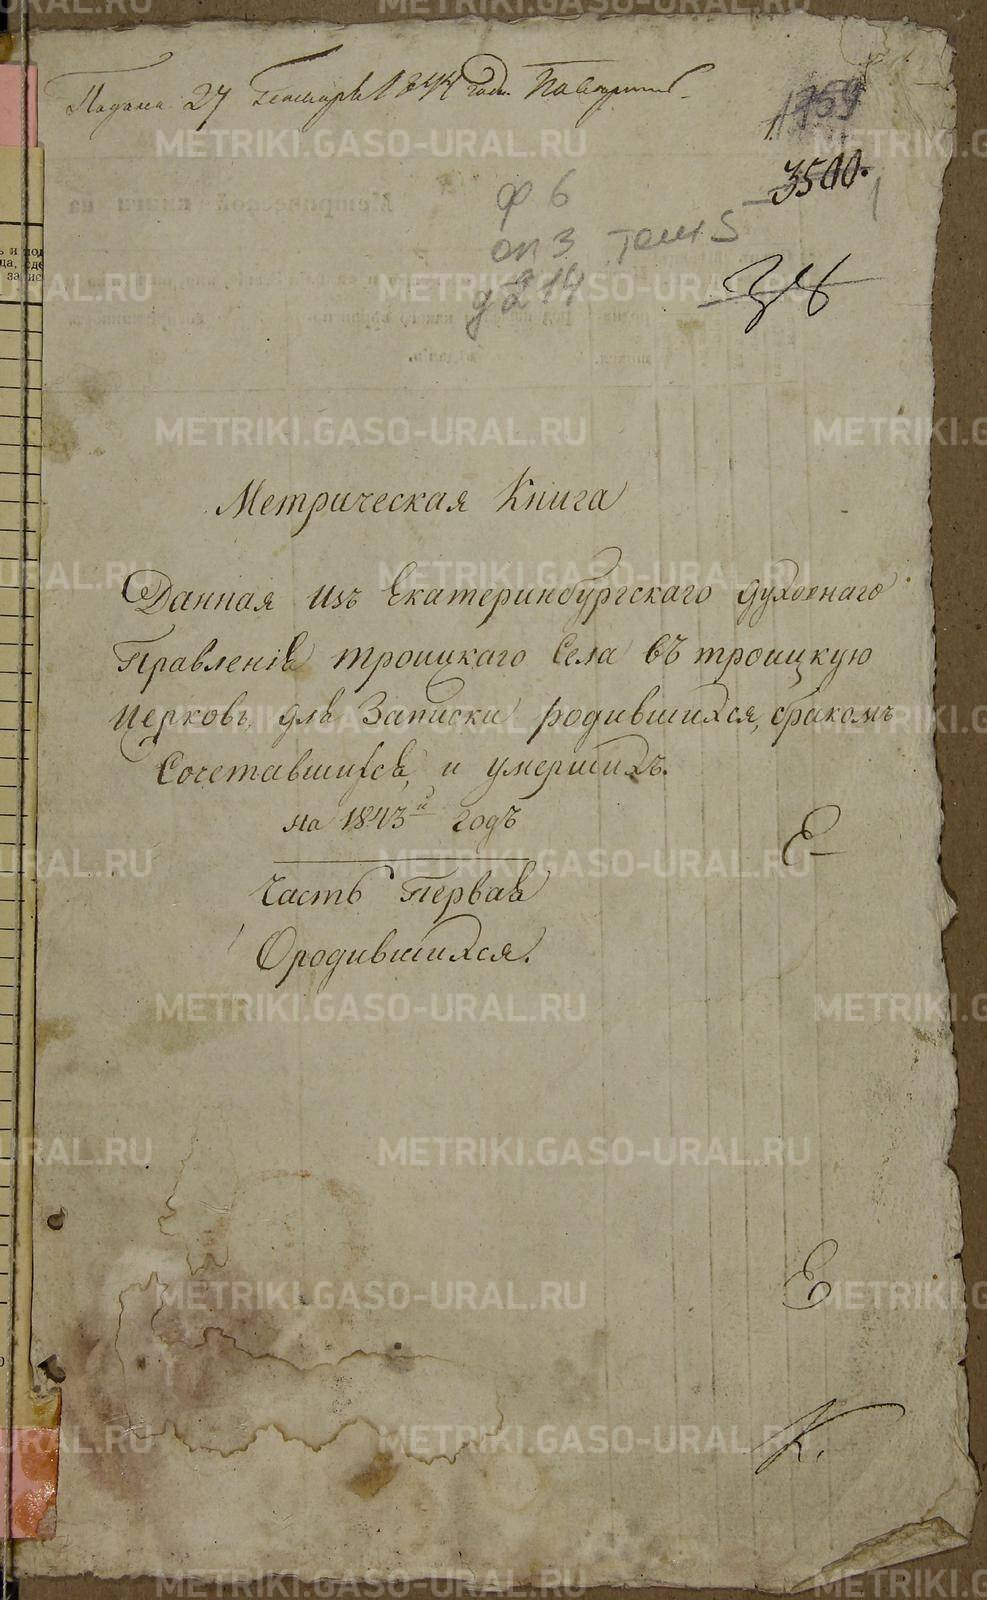 Подана 27 Генваря 1844 года
1759
3500.
1
ф 6
оп 3 том 5
д 214
34
Метрическая Книга
Данная изъ Екатеринбургскаго духовнаго
Правленія троицкаго Села въ троицкую
Церковь, для Записки родившихся, бракомъ
Сочетавшихся, и умершихъ.
на 1843й годъ
Е
Часть Первая
Ородившихся.
Е
К.
METRIKI.GASO-URAL.RU